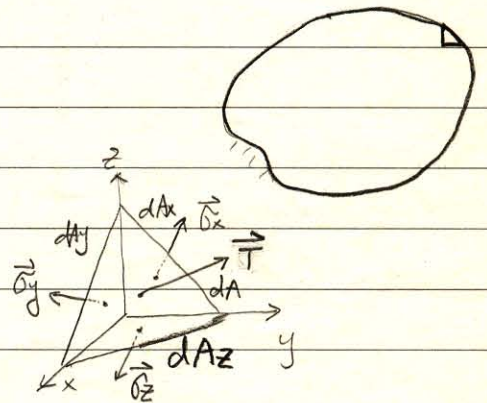 z
dAx
dAy
σ⃗x
T⃗
σ⃗y
dA
dAz
y
x
σ⃗z